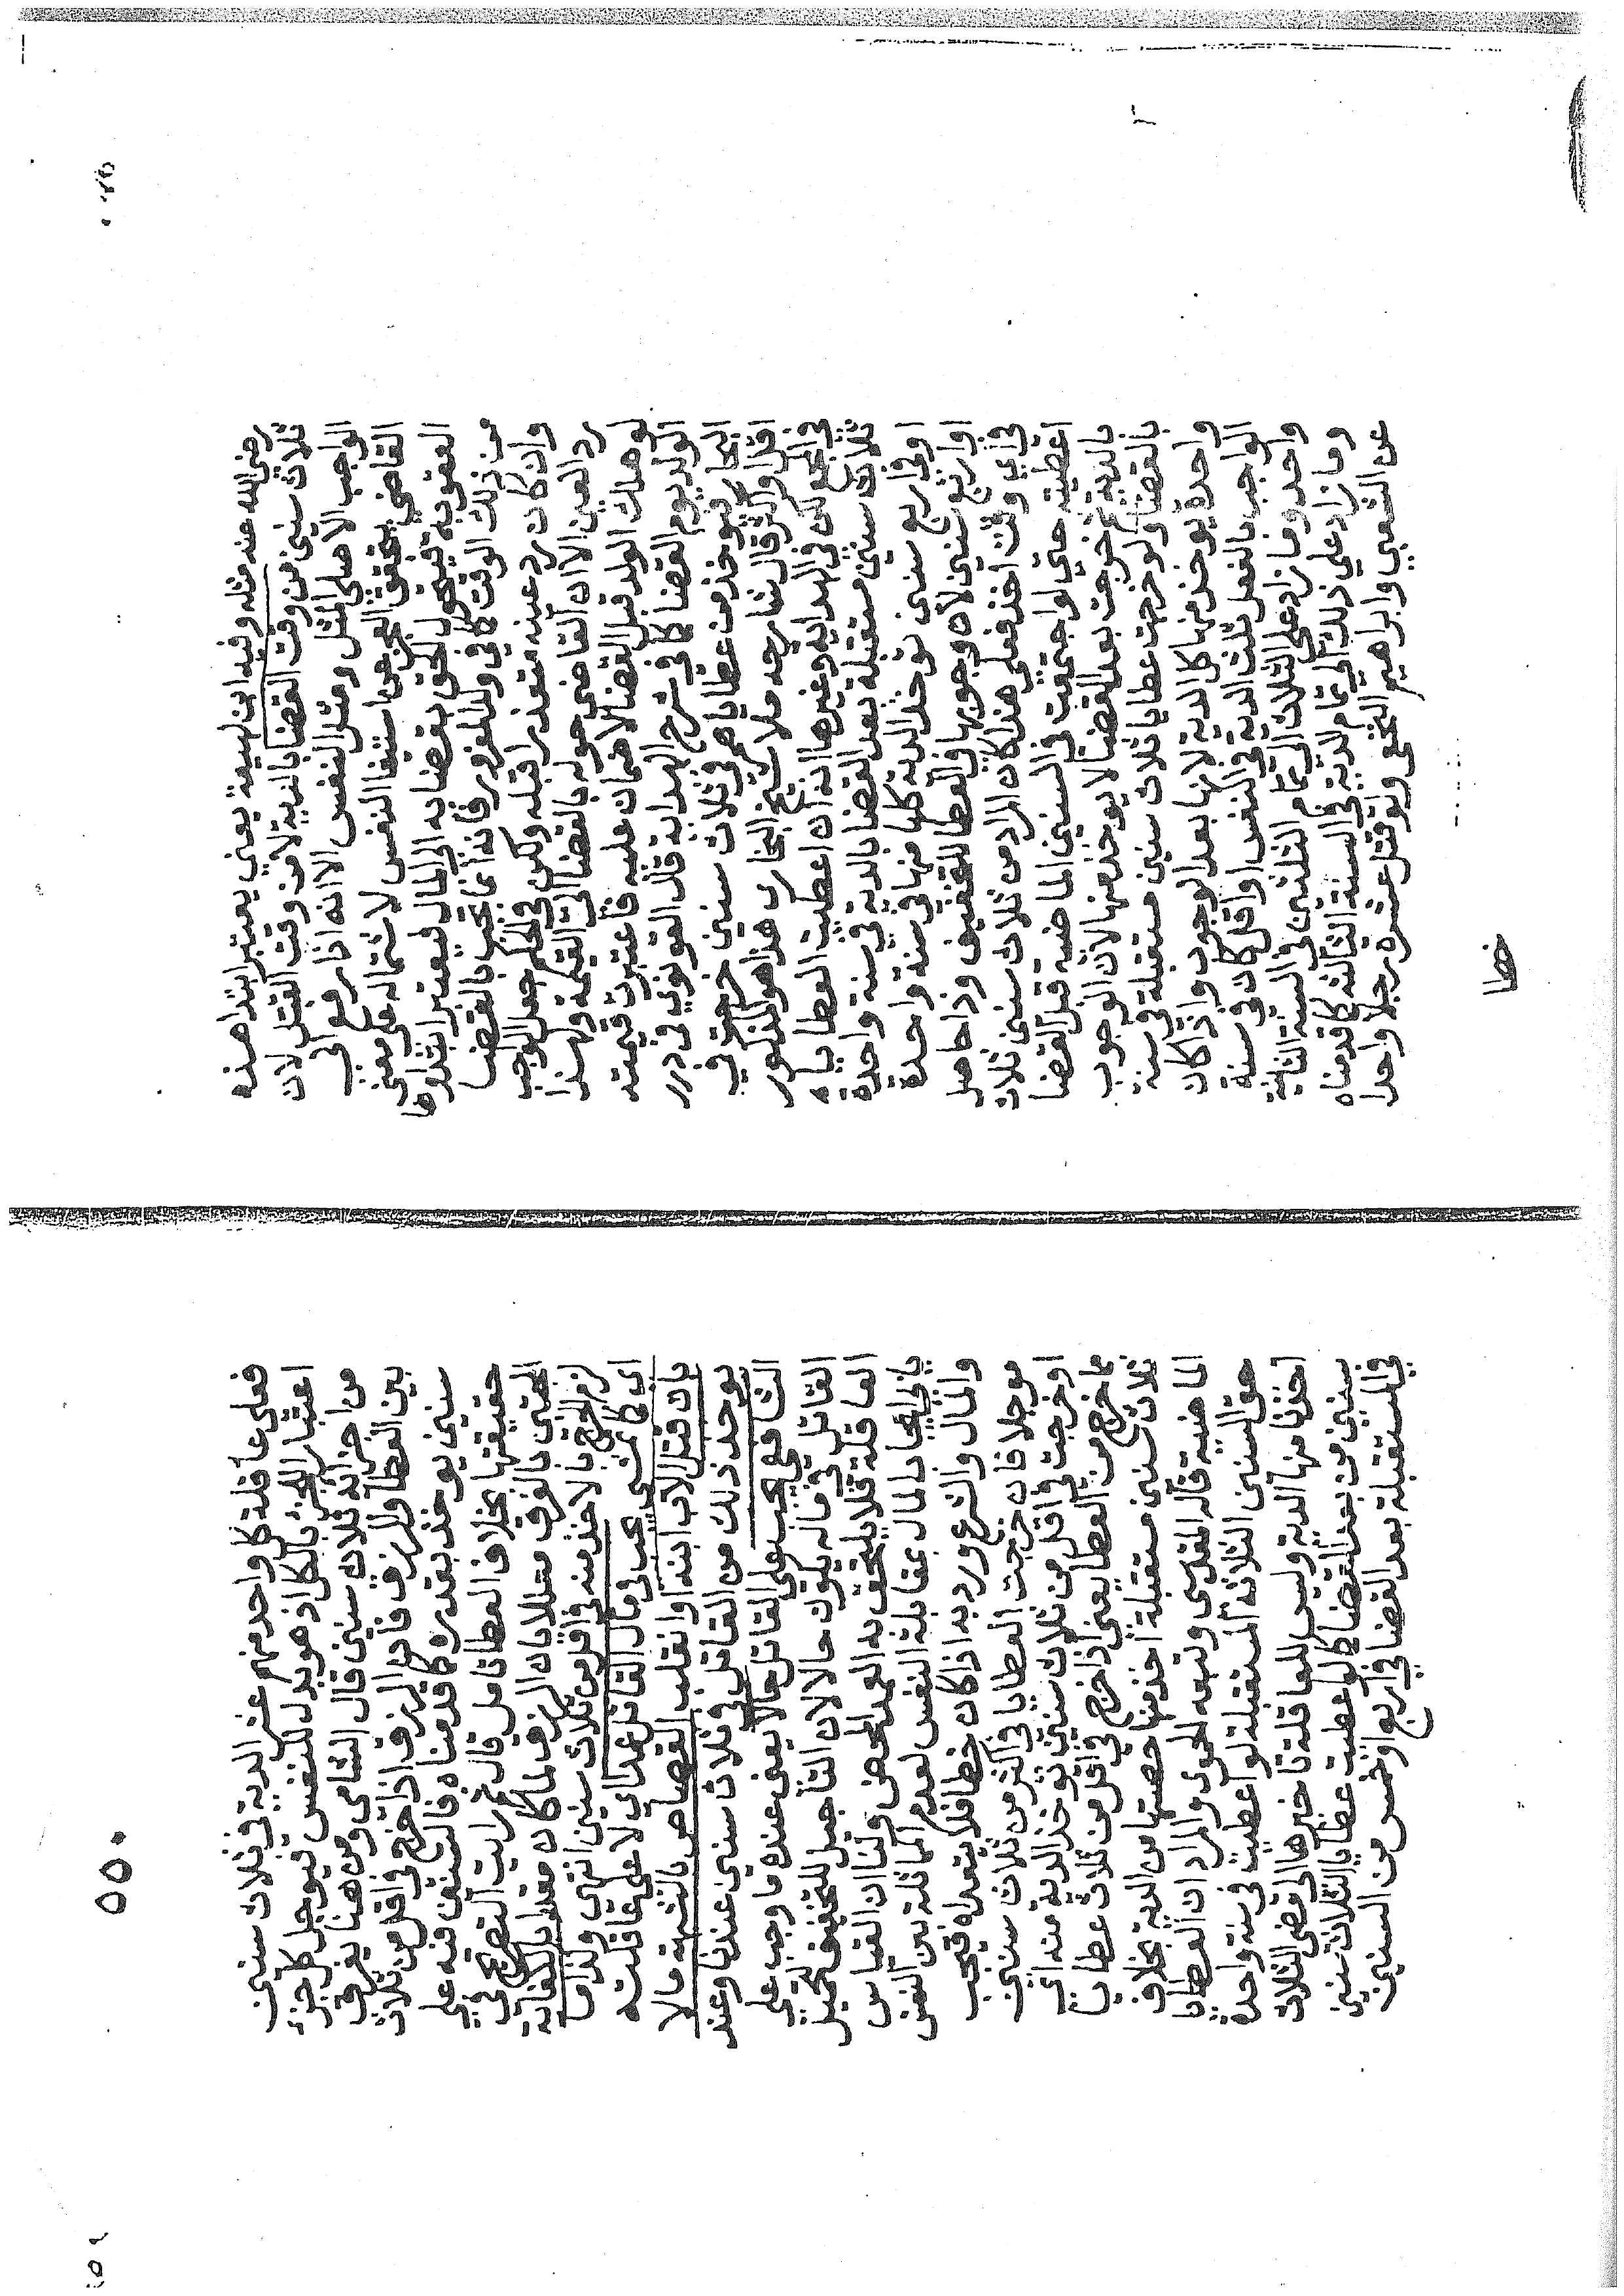 رضي الله عنه مثله وفيه ابن لهيعة يعني يعتبر ابتدا هذه
ثلاث سنين من وقت القضا بالدية لا من وقت القتل لان
الواجب الاصلي المثل ومثل النفس الا انه اذا رفع الى
القاضي يتحقق العجز عن استيفا النفس لاشتماله على معنى
العقوبة فيتحول الحق بقضايه الى المال فيعتبر ابتداوها
من ذلك الوقت كما في ولد المغرور فانه انما تجب بالقضا
وان كان رد عينه متعذرا قبله ولكن في الحكم جعل الواجب
رد العين الا ان القاضي حوله بالقضا الى القيمة ولهذا
لو هلك الولد قبل القضا لا ضمان عليه فاعتبرت قيمته
الولد يوم القضا كما في شرح الهداية قال القونوي في درر
البحار فيوخذ من عطاياهم في ثلاث سنين خرجت في
اقل او اكثر قال شارحه ملا شيخ البخاري هذا هو المذكور
في المجمع لكن في الهداية وغيرها انه ان اعطيت العطاياه
ثلاث سنين مستقبلة بعد القضا بالدية في سنة واحدة
او في اربع سنين توخذ الدية كلها منها في سنة واحدة
او اربع سنين لان وجوبها في العطا للتخفيف وذا حاصل
في اي وقت اخذ فعلى هذا كان المراد من ثلاث سنين ثلاث
اعطية حتى لو اجتمعت في السنين الماضية قبل القضا
بالدية ثم خرجت بعد القضا لا يوخذ منها لان الوجوب
بالقضا ولو خرجت عطايا ثلاث سنين مستقبلة في سنة
واحدة يوخذ منها كل الدية لانها بعد الوجوب واذا كان
الواجب بالفعل ثلث الدية في النفس او اقل كان في سنة
واحد وما زاد على الثلاث الى تمام الثلثين في السنة الثانية
وما زاد على ذلك الى تمام الدية في السنة الثالثة كما قدمناه
عن الشعبي وابراهيم النخعي ولو قتل عشرة رجلا واحدا
خطا
٥٥٠
فعلى عاقلة كل واحد منهم عشر الدية في ثلاث سنين
اعتبارا للجزء بالكل اذ هو بدل للنفس فيوجل كل جزء
من اجزائه ثلاث سنين قال الشامي ومن هنا يعرف
بين العطا والرزق فان الرزق اذا خرج في اقل من ثلاث
سنين يوخذ بقدره كما قدمناه فالسنين فيه على
حقيقتها بخلاف العطا تامل قال ثم رايت التصريح في
المجتبى بالفرق معللا بان الرزق لما كان مقدرا بالكفاية
لزم الحرج بالاخذ منه في اقل من ثلاث سنين انتهى وكذا ما
اي كما تمشي يجب في مال القاتل عمدا اي لا على عاقلته
بان قتل الاب ابنه او انقلب القصاص بالشبهة مالا
يوخذ ذلك من القاتل في ثلاث سنين عندنا وعند
الشافعي يجب على القاتل حالا يعني عنده ما وجب على
القاتل في ماله يكون حالا لان التاجيل للتخفيف لتحمل
العاقلة فلا يلتحق به العمد المحض ولنا ان القياس
يابى ايجاب المال بمقابلة النفس لعدم المماثلة بين النفس
والمال والشرع ورد به اذا كان خطا فلا يتعداه فيجب
موجلا فان خرجت العطايا في اكثر من ثلاث سنين
او خرجت في اقل من ثلاث سنين توخذ الدية منه اي
مما خرج من العطا يعني اذا خرج في اقل من ثلاث عطايا
ثلاث سنين مستقبلة اخذ منها حصتها من الدية بخلاف
الماضية قاله المقدسي وتبعه الحموي والمراد ان العطايا
حق السنين الثلاثة المستقبلة لو اعطيت في سنة واحدة
اخذنا منها الدية وليس للعاقلة تاخيرها الى مضي الثلاث
سنين من بعد القضا كما لو اعطيت عطايا الثلاث سنين
في المستقبلة بعد القضا في اربع او خمس من السنين